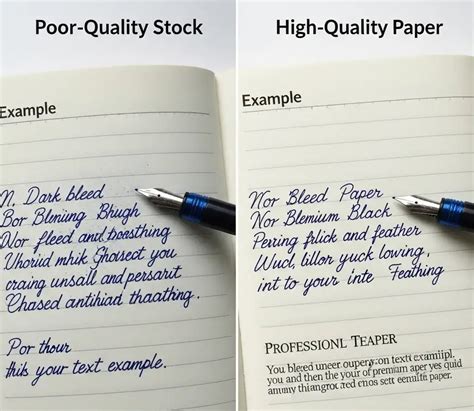 Poor-Quality Stock
Example
N. Dark bleed
Bor Blening Bhugh
Nor fleed and
Uhorid mhik you
craing unsall and persarit
Chased antihiad thaathing.
Por thour
this your text example.
High-Quality Paper
Example
Nor Bleed Paper
Nor Blemium Black
Perring frlick and feather
Wud, lillor yuck lowing,
int to your inte Feathing
PROFESSIONL TEAPER
You bleed uneer on text
you and then the your of premium aper yes quid
cnos sett paper.